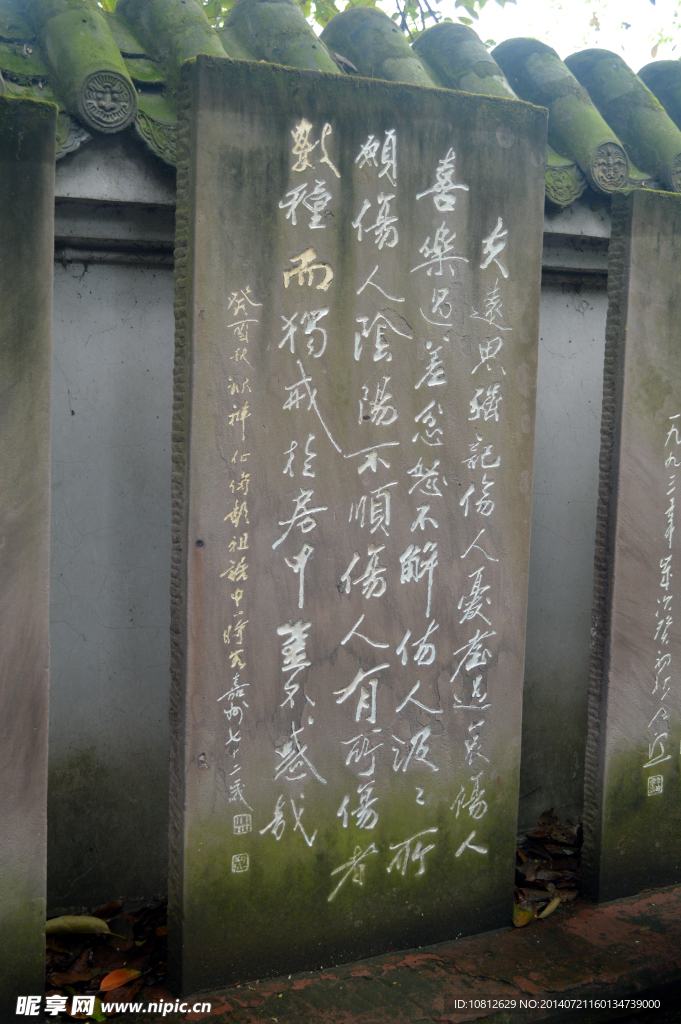 夫遠思強記傷人憂恚過哀傷人
喜樂過差忿怒不解傷人汲汲所
願傷人陰陽不順傷人有所傷者
數種而獨戒於房中豈不惑哉
癸酉秋 彭祖 中 嘉州七十二歲
一九九三年
昵享网 www.nipic.cn
ID:10812629 NO:20140721160134739000